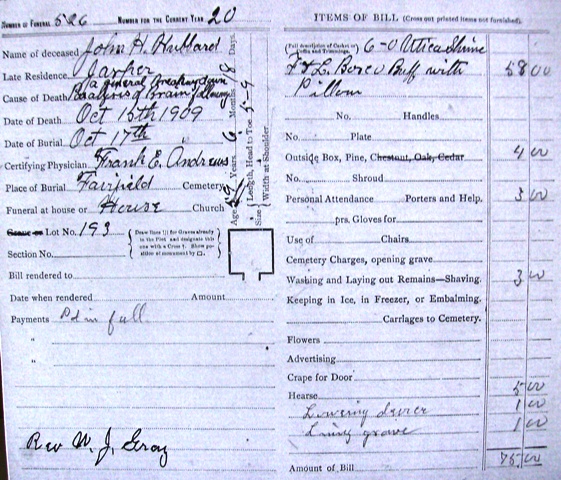 NUMBER OF FUNERAL 526 NUMBER FOR THE CURRENT YEAR 20
Name of deceased John H. Hubbard
Late Residence Jasper
a general breaking down
Cause of Death Paralysis of Brain following
Date of Death Oct 15th 1909
Date of Burial Oct 17th
Certifying Physician Frank E. Andrews
Place of Burial Fairfield Cemetery
Funeral at house or House Church
Age 59 Years 6 Months 18 Days.
Size { Length, Head to Toe 5-9
Width at Shoulder
Grave or Lot No. 193
Section No.
{ Draw lines for Graves already in the Plot and designate this one with a Cross †. Show position of monument by □. }
Bill rendered to
Date when rendered Amount
Payments Pd in full.
"
"
Rev W. J. Geray
ITEMS OF BILL (Cross out printed items not furnished).
(Full description of Casket or Coffin and Trimmings). 6-0 Utica Shine
F & L. Boxco Buff with 58 00
Pillow
No. Handles
No. Plate
Outside Box, Pine, Chestnut, Oak, Cedar 4 00
No. Shroud
Personal Attendance Porters and Help. 3 00
prs. Gloves for
Use of Chairs
Cemetery Charges, opening grave
Washing and Laying out Remains—Shaving. 3 00
Keeping in Ice, in Freezer, or Embalming.
Carriages to Cemetery.
Flowers
Advertising
Crape for Door
Hearse 5 00
Lowering device 1 00
Lining grave 1 00
Amount of Bill 75.00